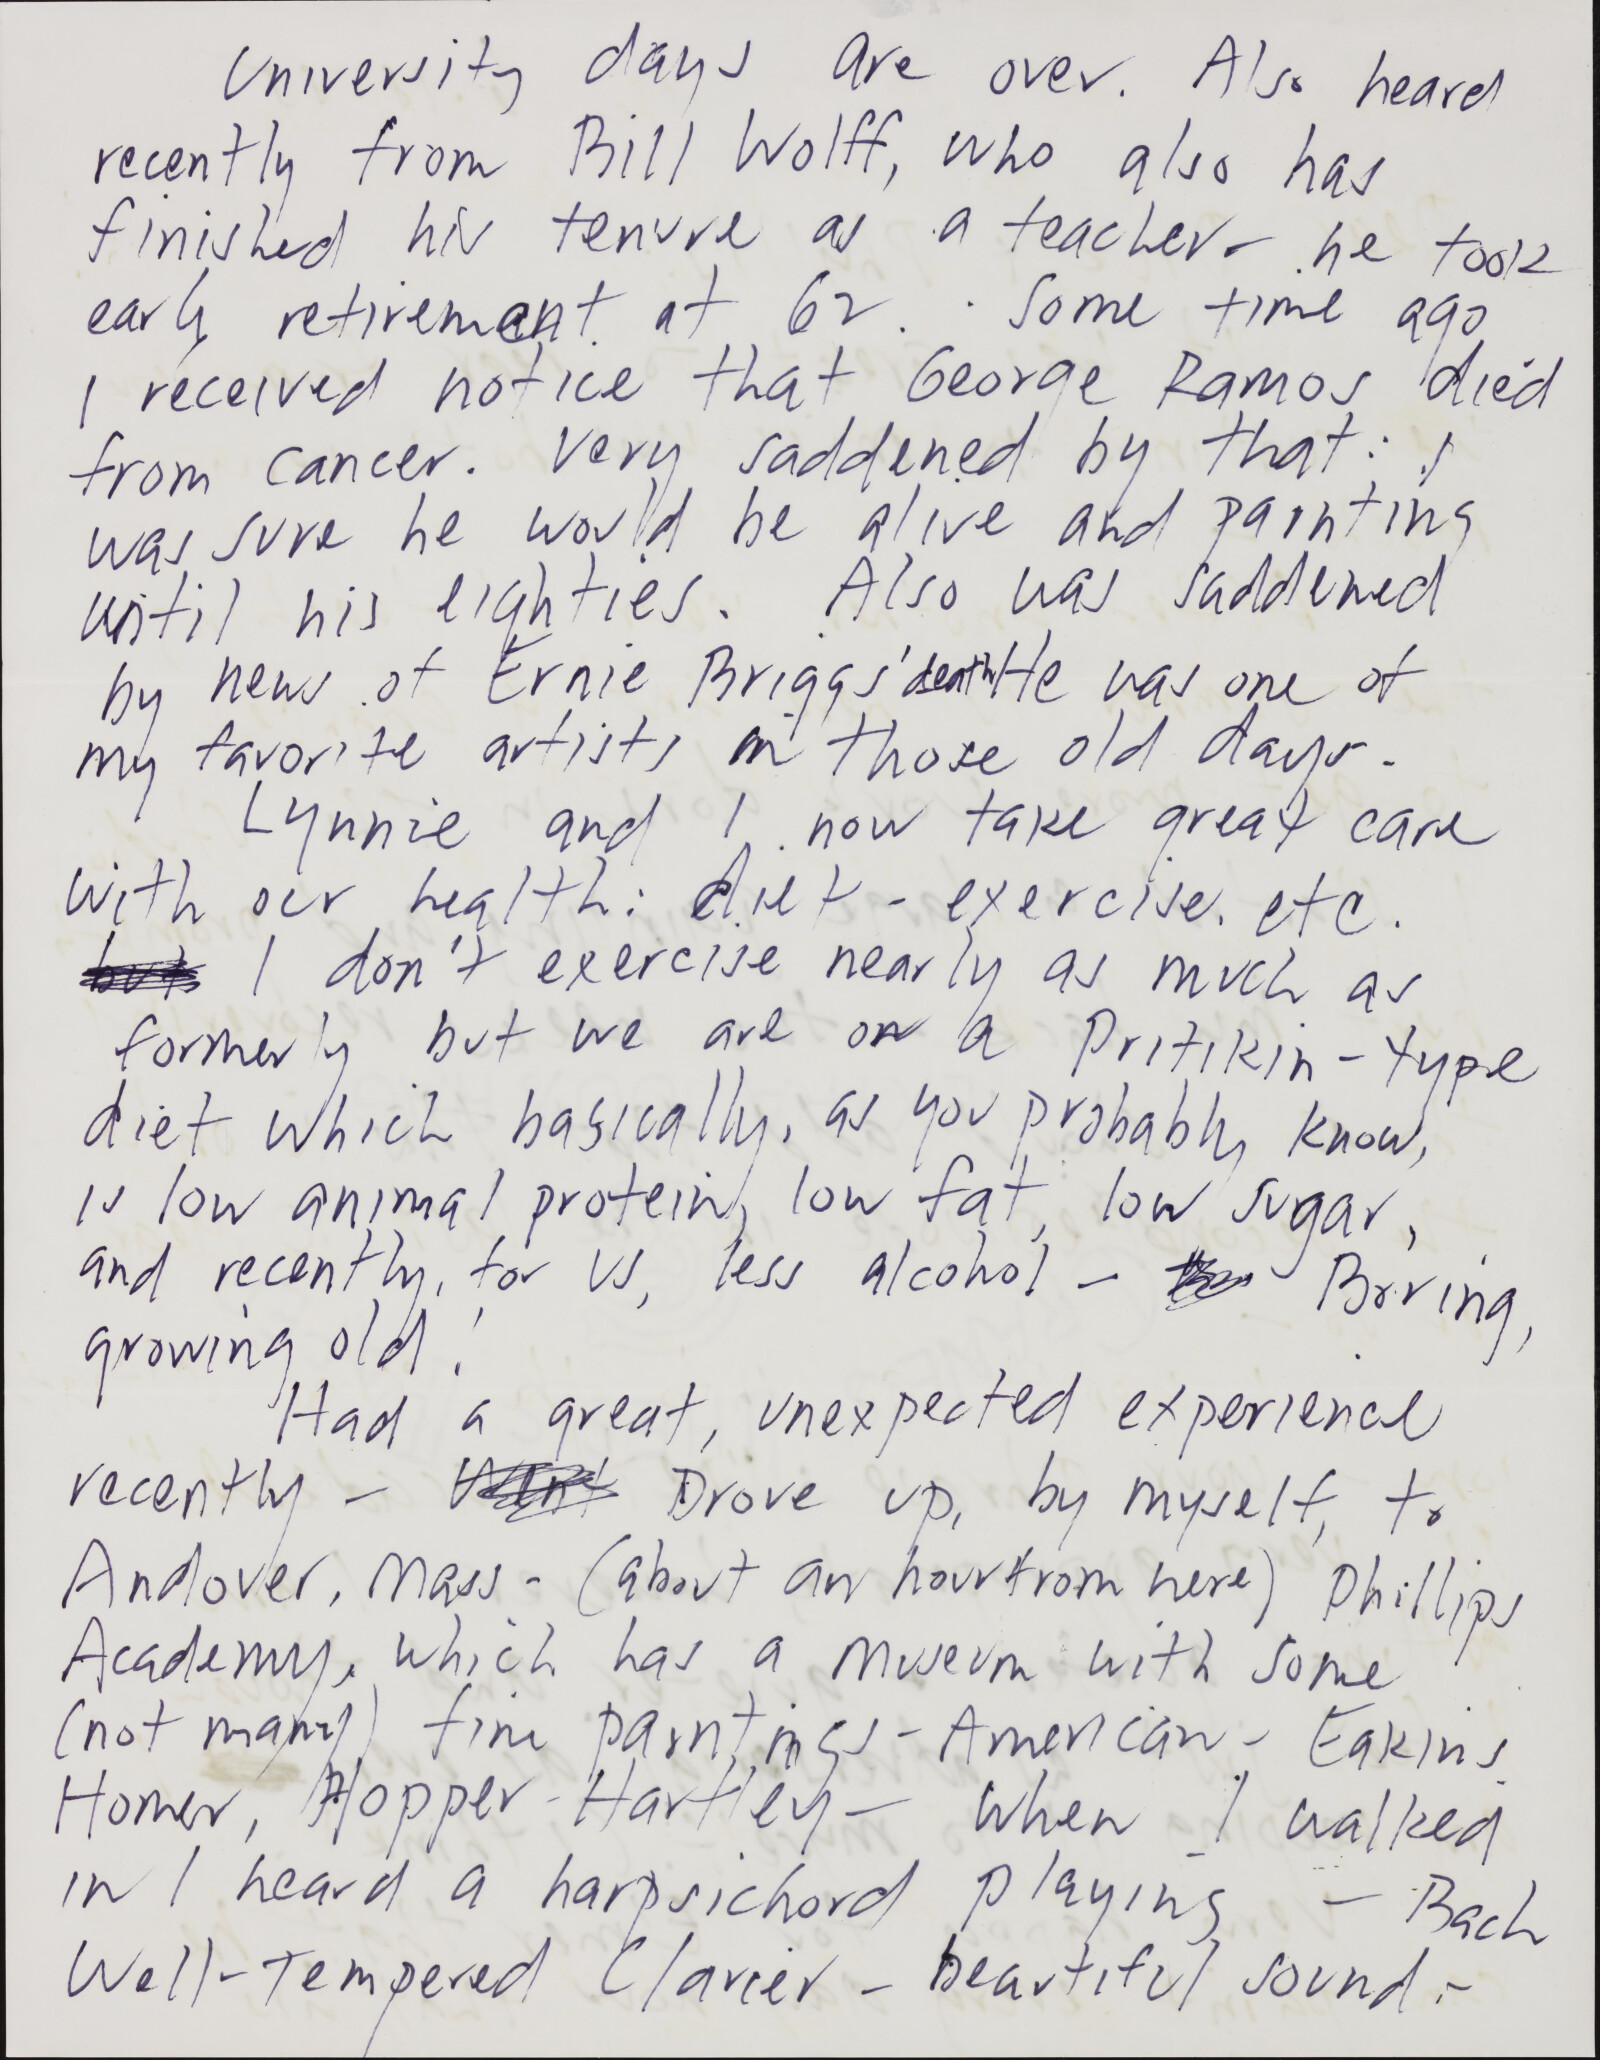 University days are over. Also heard
recently from Bill Wolff, who also has
finished his tenure as a teacher - he took
early retirement at 62. Some time ago
I received notice that George Ramos died
from cancer. Very saddened by that: I
was sure he would be alive and painting
until his eighties. Also was saddened
by news of Ernie Briggs' death He was one of
my favorite artists in those old days.
Lynnie and I now take great care
with our health: diet - exercise. etc.
but I don't exercise nearly as much as
formerly but we are on a Pritikin-type
diet which basically, as you probably know,
is low animal protein, low fat, low sugar,
and recently, for us, less alcohol - Boring,
growing old!
Had a great, unexpected experience
recently - Went Drove up, by myself, to
Andover, Mass - (about an hour from here) Phillips
Academy, which has a museum with some
(not many) fine paintings - American - Eakins
Homer, Hopper - Hartley - When I walked
in I heard a harpsichord playing - Bach
Well-Tempered Clavier - beautiful sound -